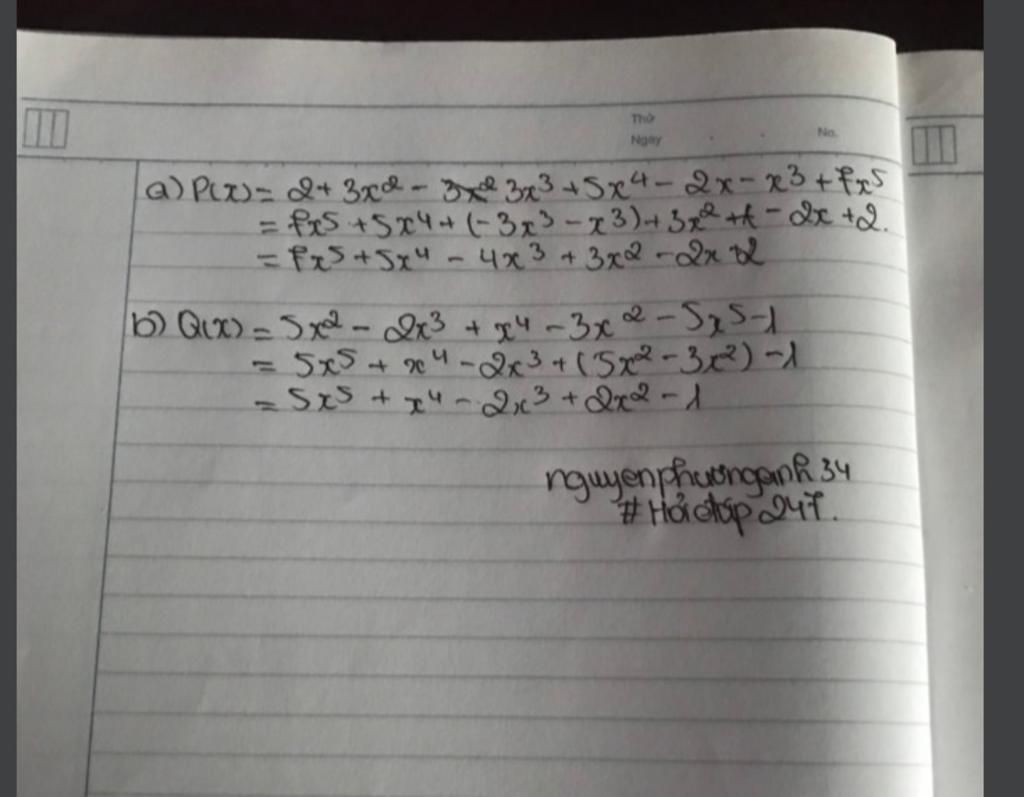 Thứ
Ngày . . No.
a) P(x) = 2 + 3x² - 3x³ + 5x⁴ - 2x - x³ + 7x⁵
= 7x⁵ + 5x⁴ + (-3x³ - x³) + 3x² + - 2x + 2.
= 7x⁵ + 5x⁴ - 4x³ + 3x² - 2x + 2
b) Q(x) = 5x² - 2x³ + x⁴ - 3x² - 5x⁵ - 1
= 5x⁵ + x⁴ - 2x³ + (5x² - 3x²) - 1
= 5x⁵ + x⁴ - 2x³ + 2x² - 1
nguyenphuonganh34
# Hỏi đáp 247.